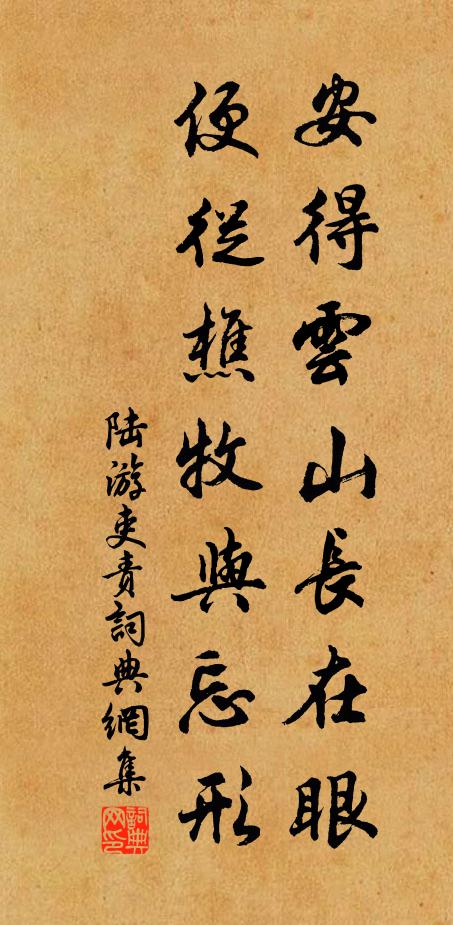 安得雲山長在眼
便從樵牧與忘形
陆游吏责詞典網集
詞典網印